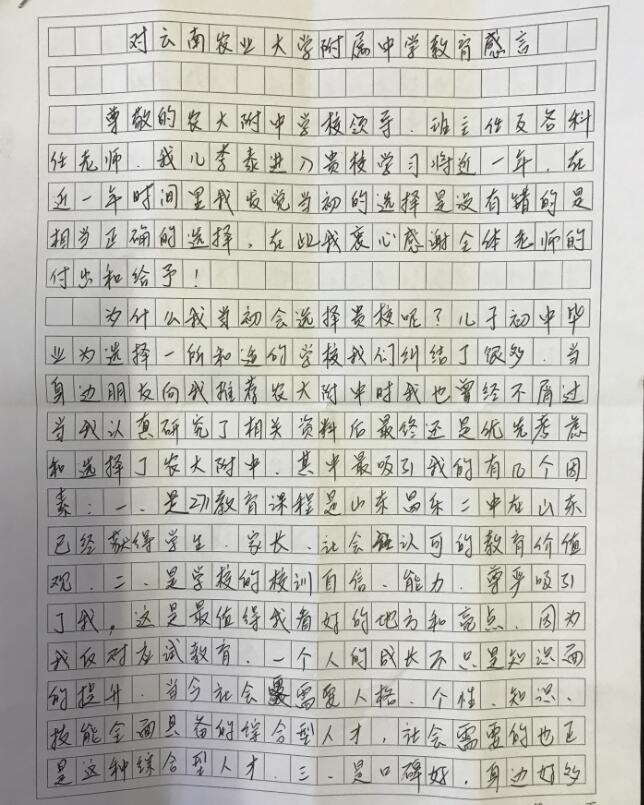 对云南农业大学附属中学教育感言
尊敬的农大附中学校领导、班主任及各科
任老师、我儿李泰进入贵校学习将近一年、在
近一年时间里我发觉当初的选择是没有错的是
相当正确的选择、在此我衷心感谢全体老师的
付出和给予！
为什么我当初会选择贵校呢？儿子初中毕
业为选择一所和适的学校我们纠结了很多、当
身边朋友向我推荐农大附中时我也曾经不屑过
当我认真研究了相关资料后最终还是优先考虑
和选择了农大附中、其中最吸引我的有几个因
素：一、是271教育课程是山东昌乐二中在山东
已经获得学生、家长、社会认可的教育价值
观、二、是学校的校训自信、能力、尊严吸引
了我，这是最值得我看好的地方和亮点、因为
我反对应试教育、一个人的成长不只是知识面
的提升、当今社会需要人格、个性、知识、
技能全面具备的综合型人才，社会需要的也正
是这种综合型人才、三、是口碑好，身边好多